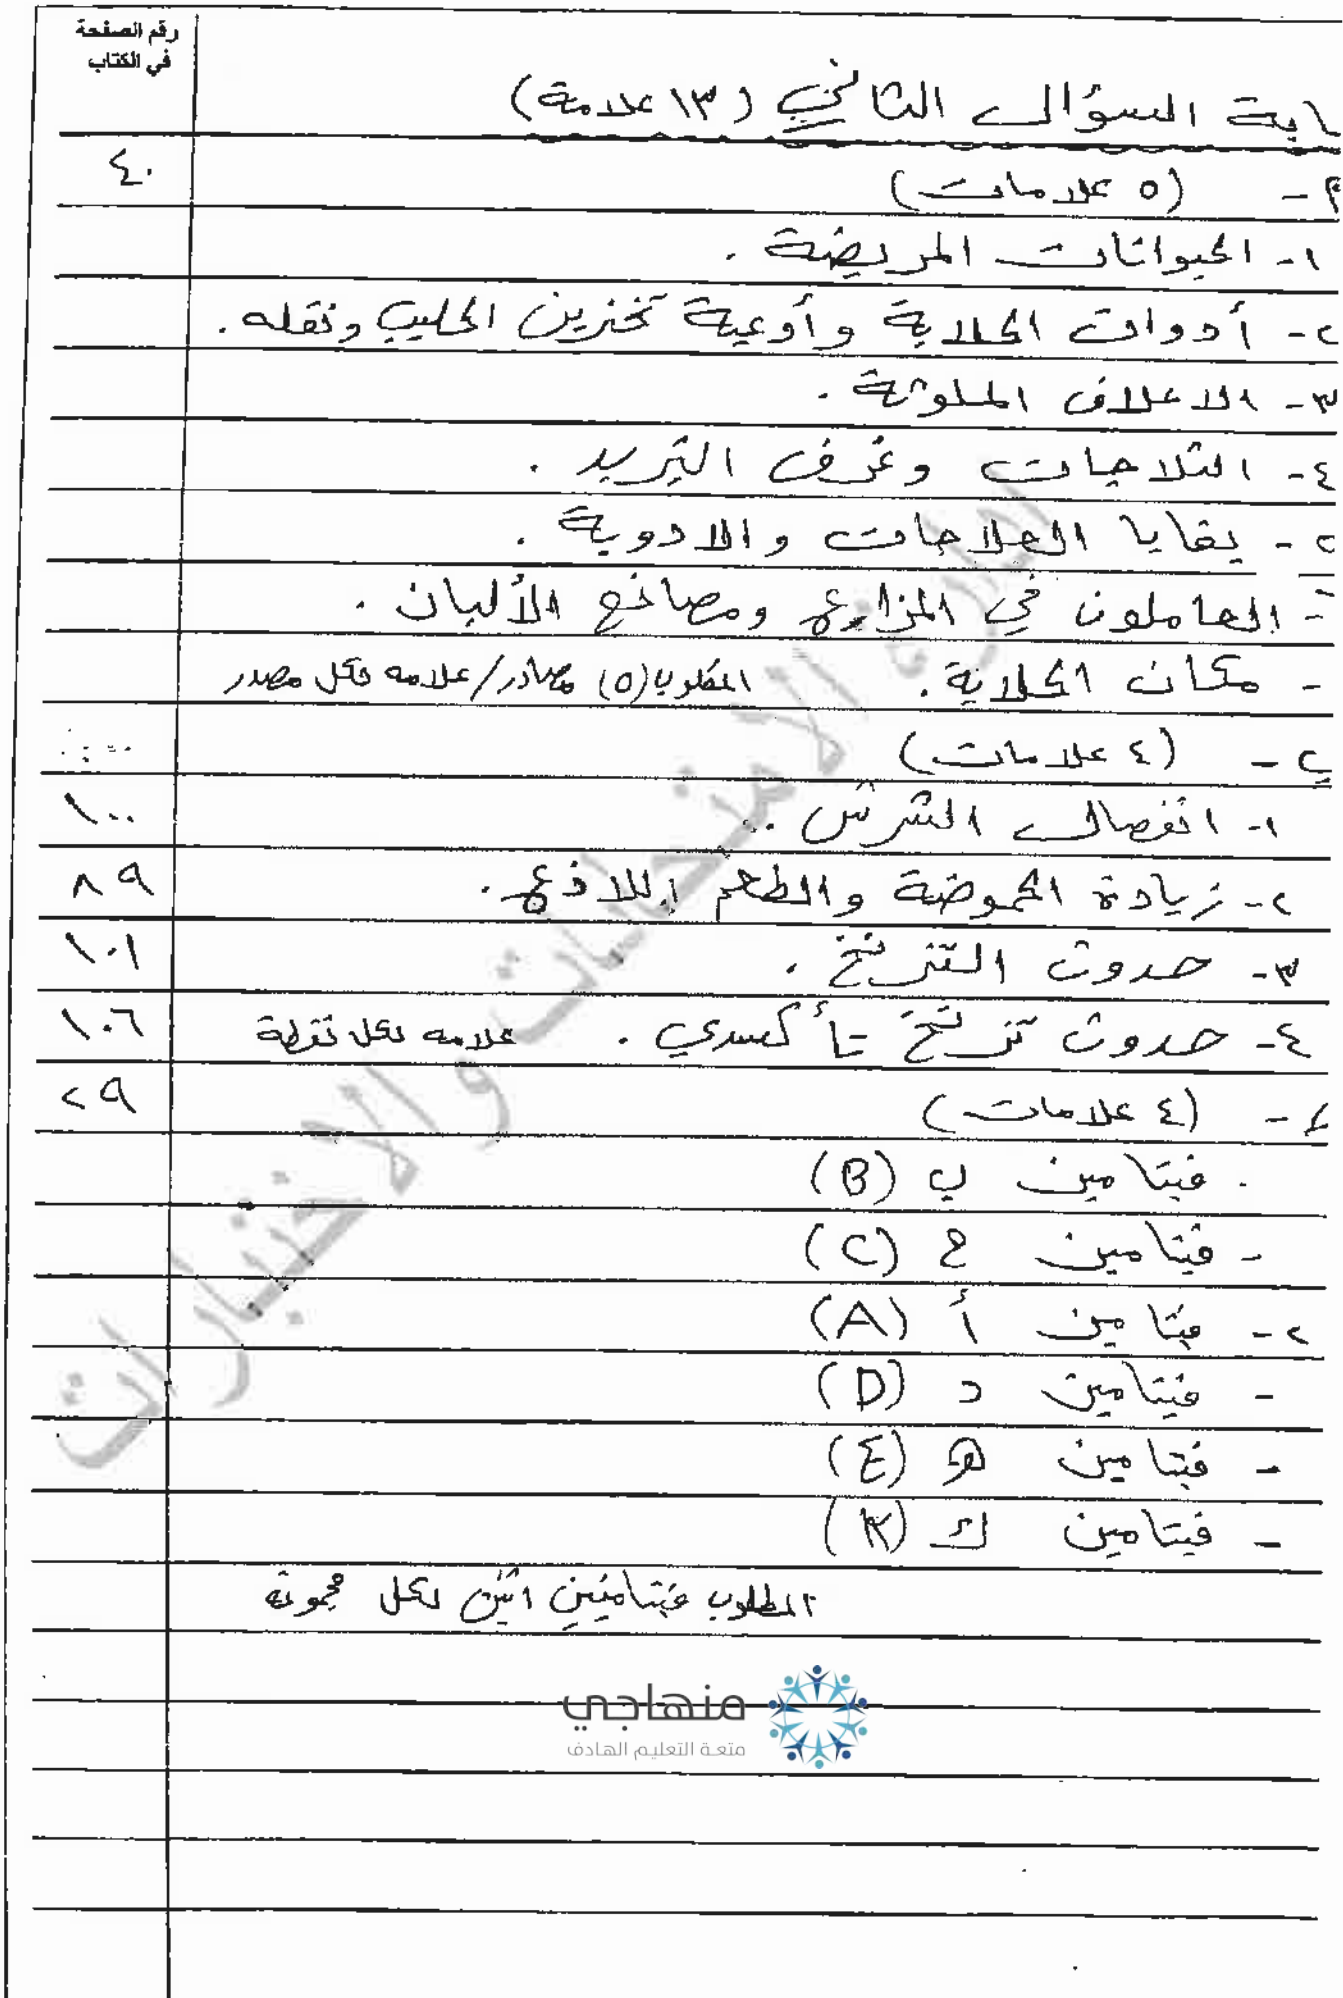 رقم الصفحة
في الكتاب
ابة السؤال الثاني (١٣ علامة)
أ - (٥ علامات) ٤٠
١- الحيوانات المريضة .
٢- أدوات الحلابة وأوعية تخزين الحليب ونقله .
٣- الاعلاف الملوثة .
٤- الثلاجات وغرف التبريد .
٥- بقايا العلاجات والادوية .
- العاملون في المزارع ومصانع الألبان .
- مكان الحلابة . المطلوب (٥) مصادر/علامه لكل مصدر
ب - (٤ علامات)
١- انفصال الشرش . ١٠٠
٢- زيادة الحموضة والطعم اللاذع . ٨٩
٣- حدوث التزنخ . ١٠١
٤- حدوث تزنخ تأكسدي . علامه لكل نقطة ١٠٦
- (٤ علامات) ٢٩
. فيتامين ب (B)
- فيتامين ج (C)
٢- فيتامين أ (A)
- فيتامين د (D)
- فيتامين هـ (E)
- فيتامين ك (K)
المطلوب فيتامينين اثنين لكل مجموعة
ادارة الامتحانات والاختبارات
منهاجي
متعة التعليم الهادف